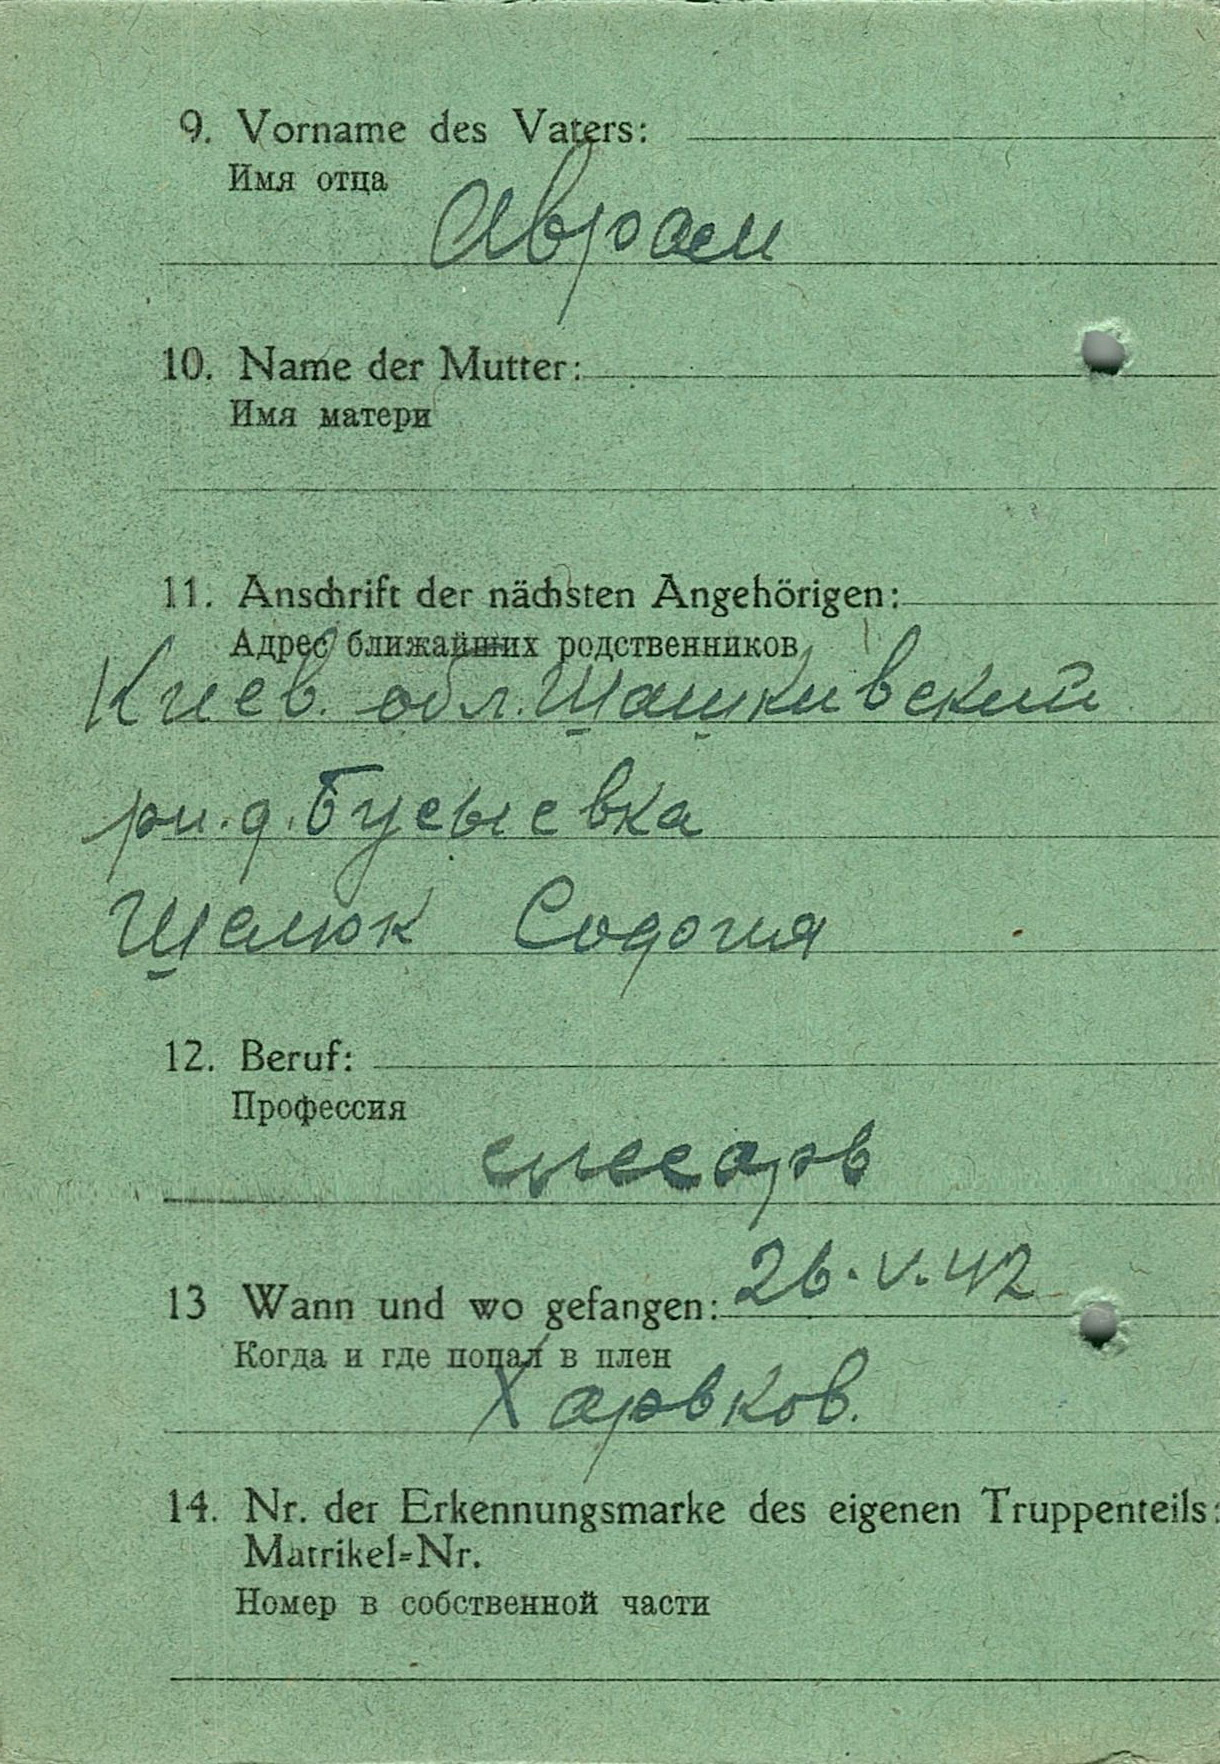 9. Vorname des Vaters:
Имя отца
Аврам
10. Name der Mutter:
Имя матери
11. Anschrift der nächsten Angehörigen:
Адрес ближайших родственников
Киев. обл. Шашкивский
рн. д. Бусыевка
Шелюк Содония
12. Beruf:
Профессия
слесарь
13 Wann und wo gefangen: 26.V.42
Когда и где попал в плен
Харьков.
14. Nr. der Erkennungsmarke des eigenen Truppenteils:
Matrikel=Nr.
Номер в собственной части